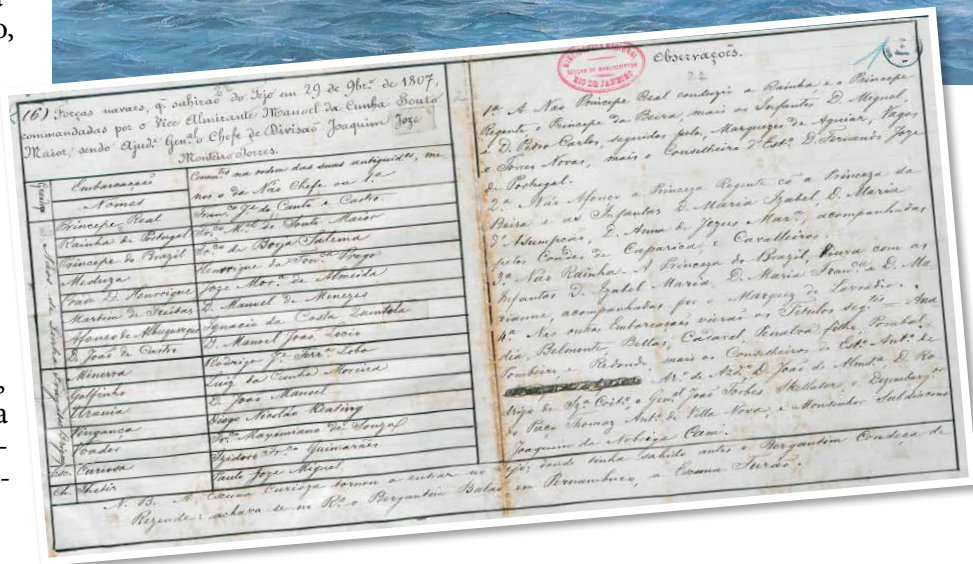 (16) Forças navaes, q. sahirão do Tejo em 29 de 9br.º de 1807,
commandadas por o Vice Almirante Manoel da Cunha Souto
Maior, sendo Ajud.e Gen.al o Chefe de Divisão Joaquim Joze
Monteiro Torres.
Embarcaçoẽs
Nomes
Comm.tes na ordem das suas antiguid.es, me
nos o da Não Chefe ou 1.ª
Principe Real Fran.co Je do Canto e Castro
Rainha de Portugal Fr.co M.el de Souto Maior
Principe do Brazil Fr.co de Borja Salema
Meduza Henrique da Fon.ca Prego
Conde D. Henrique Joze Mor.ª de Almeida
Martim de Freitas D. Manuel de Menezes
Afonso de Albuquerque Ignacio da Costa Quintela
D. João de Castro D. Manoel João Locio
Minerva Rodrigo Je Ferr.ª Lobo
Golfinho Luiz da Cunha Moreira
Urania D. João Manoel
Vingança Diogo Nicolao Keating
Voador Fr.co Maximiano de Souza
Esc. Curiosa Izidoro Fr.co Guimarães
Ch. Thetis Paulo Joze Miguel
N. B. A Escuna Curioza tornou a entrar no Tejo; donde tinha sahido antes o Bergantim Condeça de
Rezende: achava se no R.º o Bergantim Balão em Pernambuco, a Escuna Furão.
BIBLIOTHECA NACIONAL
RIO DE JANEIRO
Observaçoẽs.
22
1ª A Não Principe Real conduzio a Rainha e o Principe
Regente o Principe da Beira, mais os Infantes D. Miguel,
e D. Pedro Carlos, seguidos pelos Marquezes de Aguiar, Vagos
e Torres Novas, mais o Conselheiro d'Est.º D. Fernando Joze
de Portugal.
2.ª Não Afonco a Princeza Regente cõ a Princeza da
Beira e as Infantas D. Maria Izabel, D. Maria
d'Asumpcão, D. Anna de Jezus Mar.ª, acompanhadas
pelos Condes de Caparica e Cavalleiros.
3.ª Não Rainha. A Princeza do Brazil, Viuva com as
Infantas D. Izabel Maria, D. Maria Fran.ca e D. Ma
rianna, acompanhadas por o Marquez de Lavradio.
4.ª Nas outras Embarcaçoẽs vierão os Titulos seg.tes Ana
dia, Belmonte Bellas, Cadaval, Penalva filho, Pombal,
Pombeiro e Redondo mais os Conselheiros de Est.º Ant.º de
Ar.º de Azd.º D. João de Almd.ª, D. Ro
drigo de Sz.ª Coit.º, o Gen.al João Forbes Skellater, o Dezembarg.or
do Paço Thomaz Ant.º de Villa Nova, e Monsenhor Subdiacono
Joaquim da Nobrega Cam.